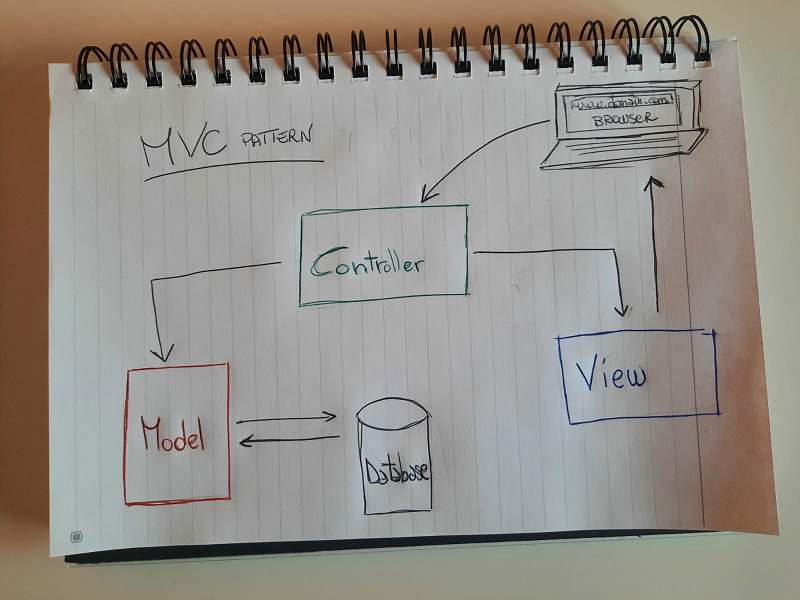 MVC PATTERN
www.domain.com
BROWSER
Controller
View
Model
Database